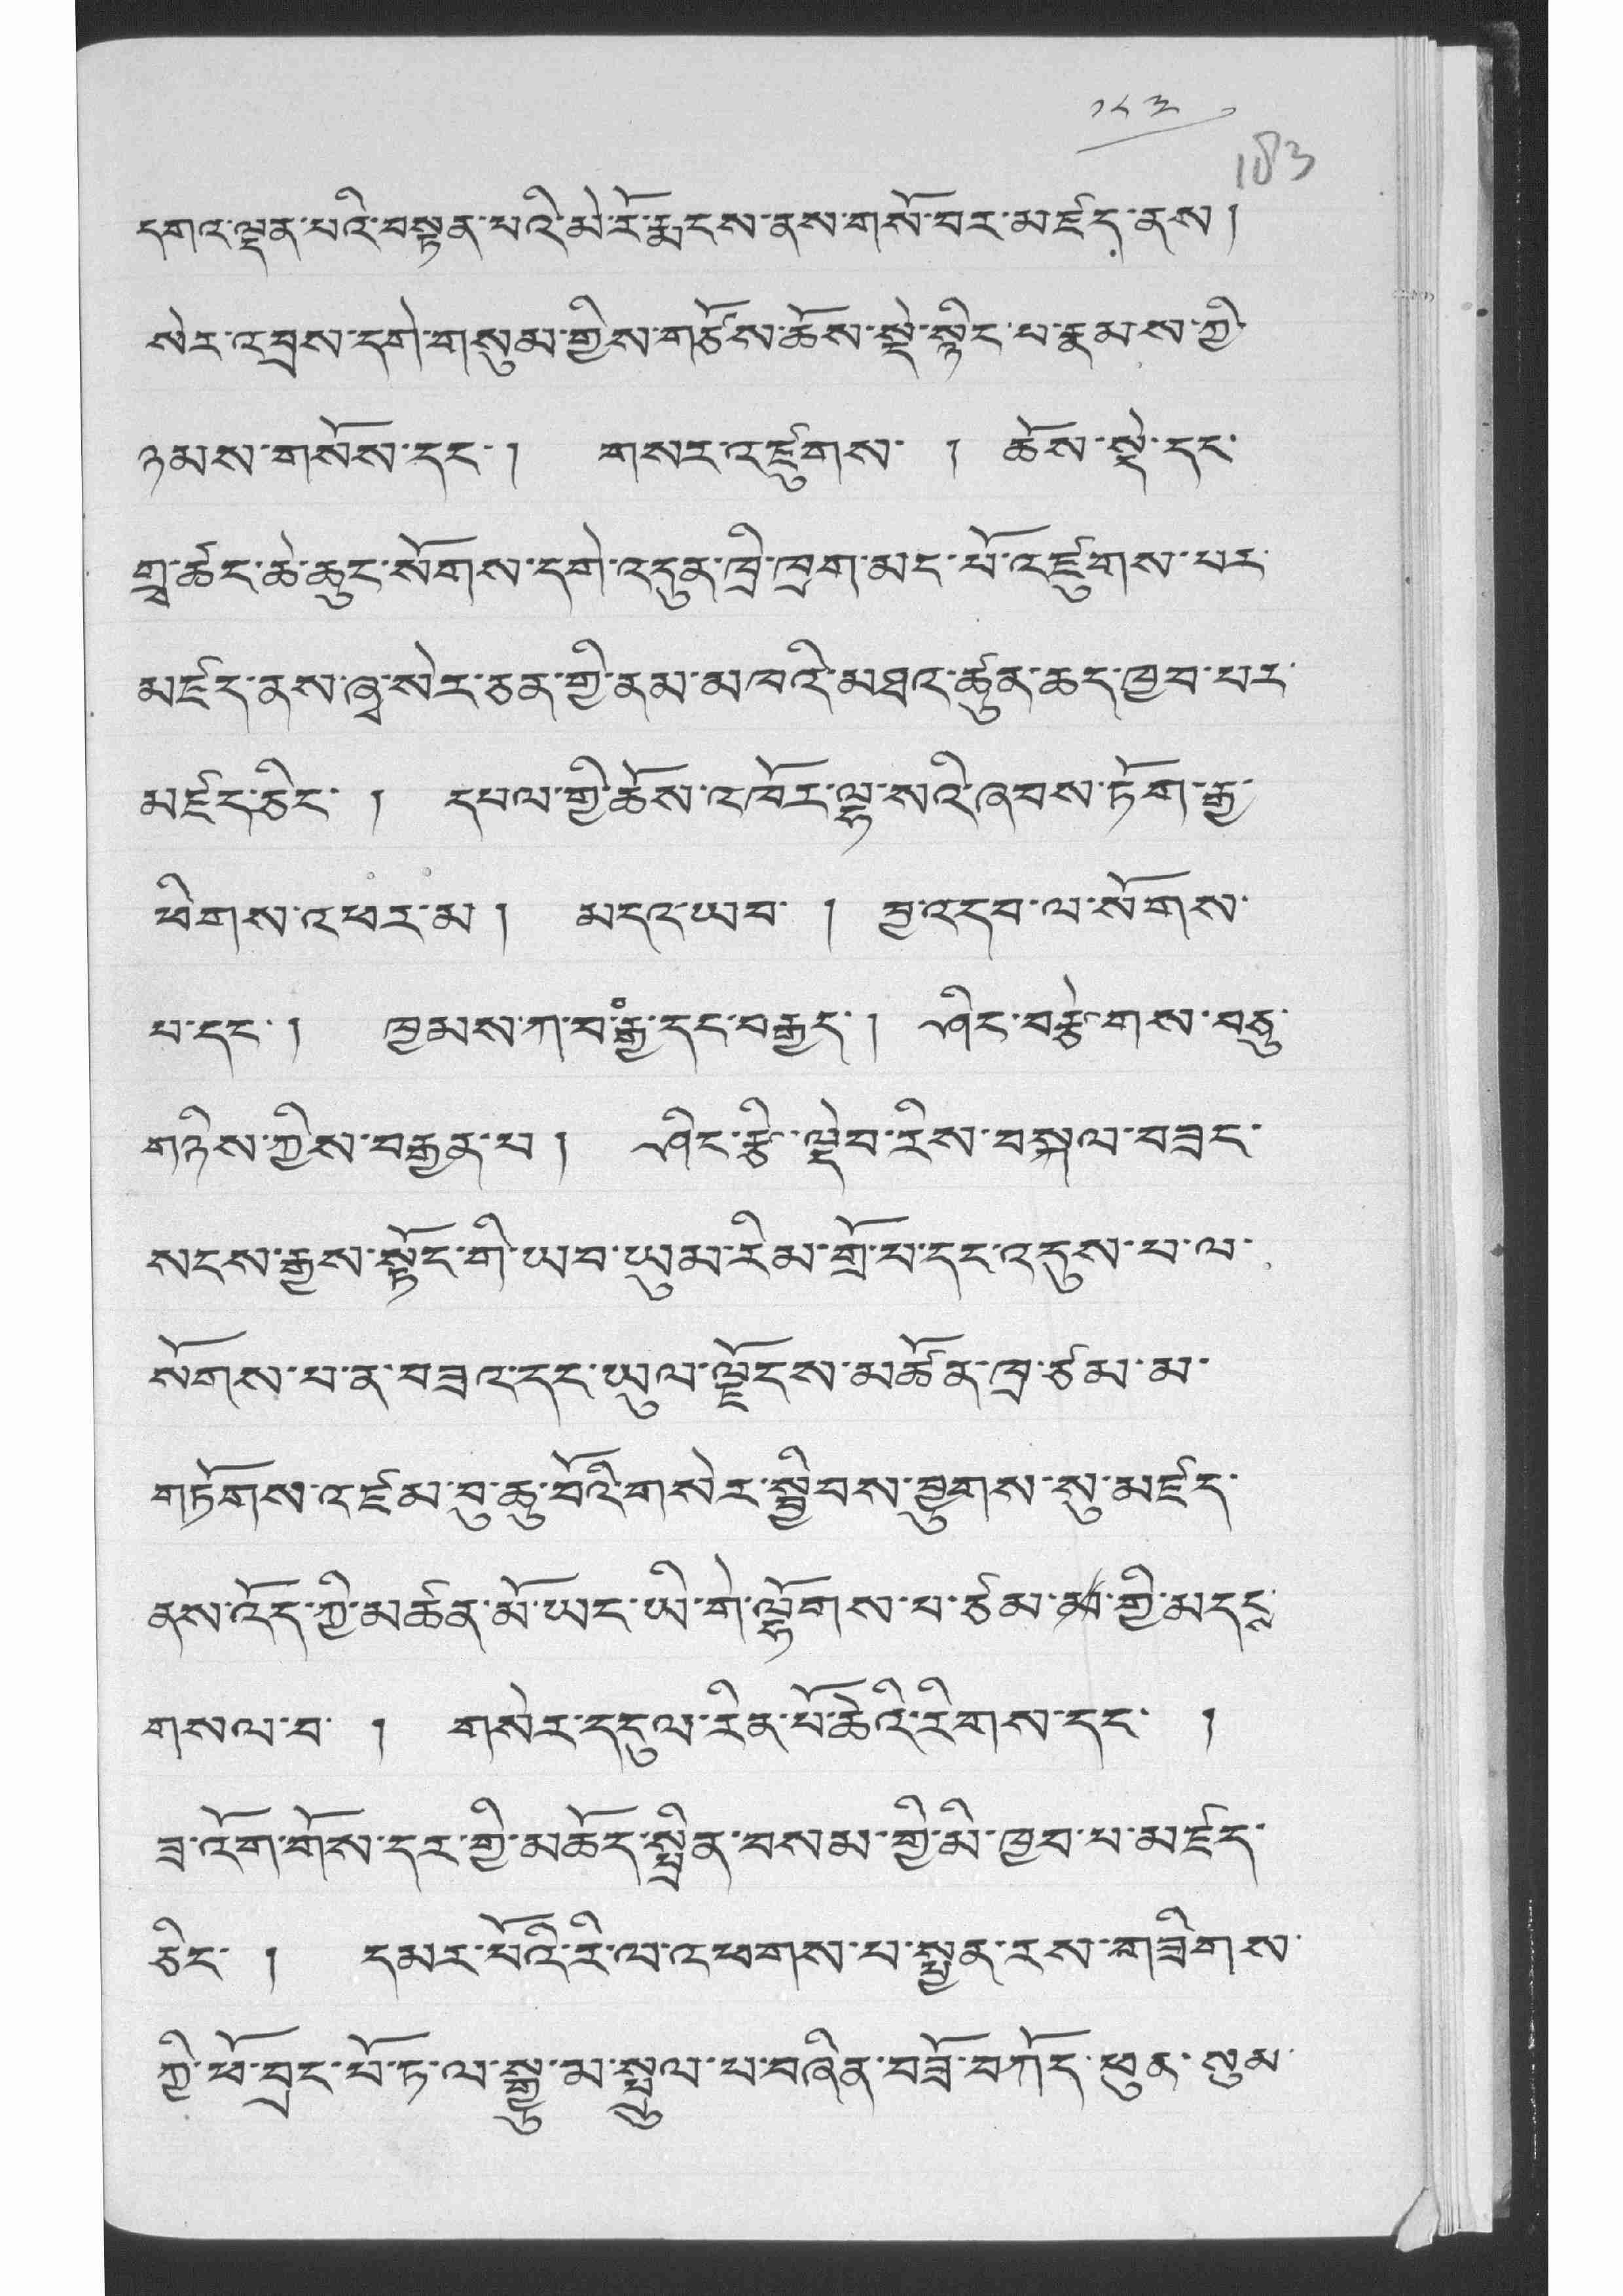 ༡༨༣
183
དགའ་ལྡན་པའི་བསྟན་པའི་མེ་རོ་རྨངས་ནས་གསོ་བར་མཛད་ནས།
སེར་འབྲས་དགེ་གསུམ་གྱིས་གཙོས་ཆོས་སྡེ་སྙིང་པ་རྣམས་ཀྱི
ཉམས་གསོས་དང་། གསར་འཛུགས་ །ཆོས་སྡེ་དང་
གྲྭ་ཚང་ཆེ་ཆུང་སོགས་དགེ་འདུན་ཁྲི་ཁྲག་མང་པོ་འཛུགས་པར་
མཛད་ནས་ཞྭ་སེར་ཅན་གྱི་ནམ་མཁའི་མཐའ་ཚུན་ཆད་ཁྱབ་པར་
མཛད་ཅིང་། དཔལ་གྱི་ཆོས་འཁོར་ལྷ་སའི་ཞབས་ཏོག་རྒྱ་
ཕིགས་འཕར་མ། མདའ་ཡབ་ །བྱ་འདབ་ལ་སོགས་
པ་དང་། ཁྱམས་ཀ་བ་རྒྱ་དང་བརྒྱད་། ཤིང་བརྩེགས་བཅུ་
གཉིས་ཀྱིས་བརྒྱན་པ། ཤིང་རྩི་ལྡེབ་རིས་བསྐལ་བཟང་
སངས་རྒྱས་སྟོང་གི་ཡབ་ཡུམ་རིམ་གྲོ་པ་དང་འདུས་པ་ལ་
སོགས་པ་ན་བཟའ་དང་ཡུལ་ལྗོངས་མཚོན་ཁྲ་ཙམ་མ་
གཏོགས་འཛམ་བུ་ཆུ་བོའི་གསེར་སྦྱིབས་བྱུགས་སུ་མཛད་
ནས་འོད་ཀྱི་མཚན་མོ་ཡང་ཡི་གེ་ལྷོགས་པ་ཙམ་གྱི་མདང
གསལ་བ་ །གསེར་དངུལ་རིན་པོ་ཆེའི་རིགས་དང་ །
ཟ་འོག་གོས་དར་གྱི་མཆོད་སྤྲིན་བསམ་གྱི་མི་ཁྱབ་པ་མཛད་
ཅིང་། དམར་པོའི་རི་ལ་འཕགས་པ་སྤྱན་རས་གཟིགས་
ཀྱི་ཕོ་བྲང་པོ་ཏ་ལ་སྒྱུ་མ་སྤྲུལ་པ་བཞིན་བཟོ་བཀོད་ཕུན་སུམ་